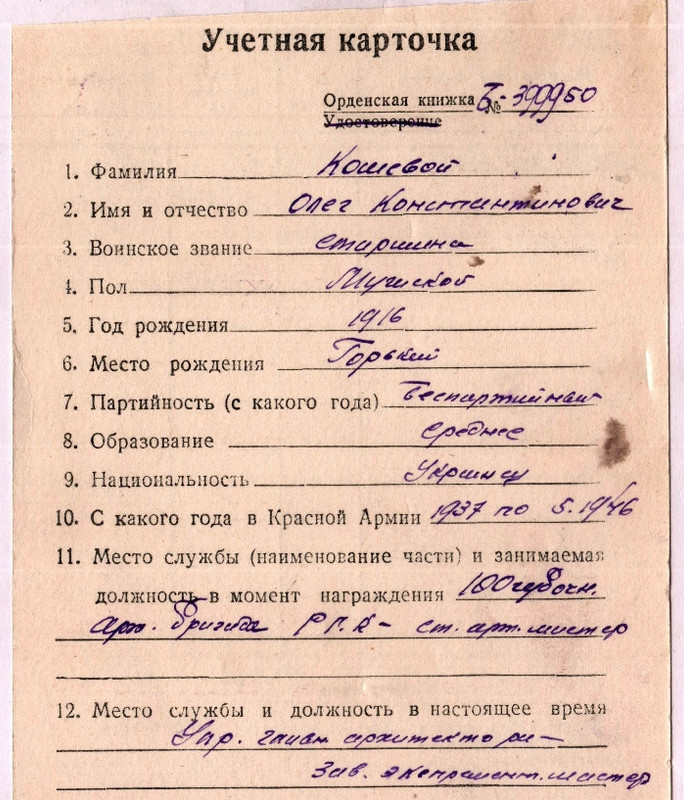 Учетная карточка
Орденская книжка № Б-399950
Удостоверение
1. Фамилия Кошевой
2. Имя и отчество Олег Константинович
3. Воинское звание старшина
4. Пол Мужской
5. Год рождения 1916
6. Место рождения Горький
7. Партийность (с какого года) Беспартийный
8. Образование среднее
9. Национальность Украинец
10. С какого года в Красной Армии 1937 по 5.1946
11. Место службы (наименование части) и занимаемая
должность в момент награждения 100
арт. бригада РГК - ст. арт. мастер
12. Место службы и должность в настоящее время
Упр. главн. архитектора -
Зав. мастер